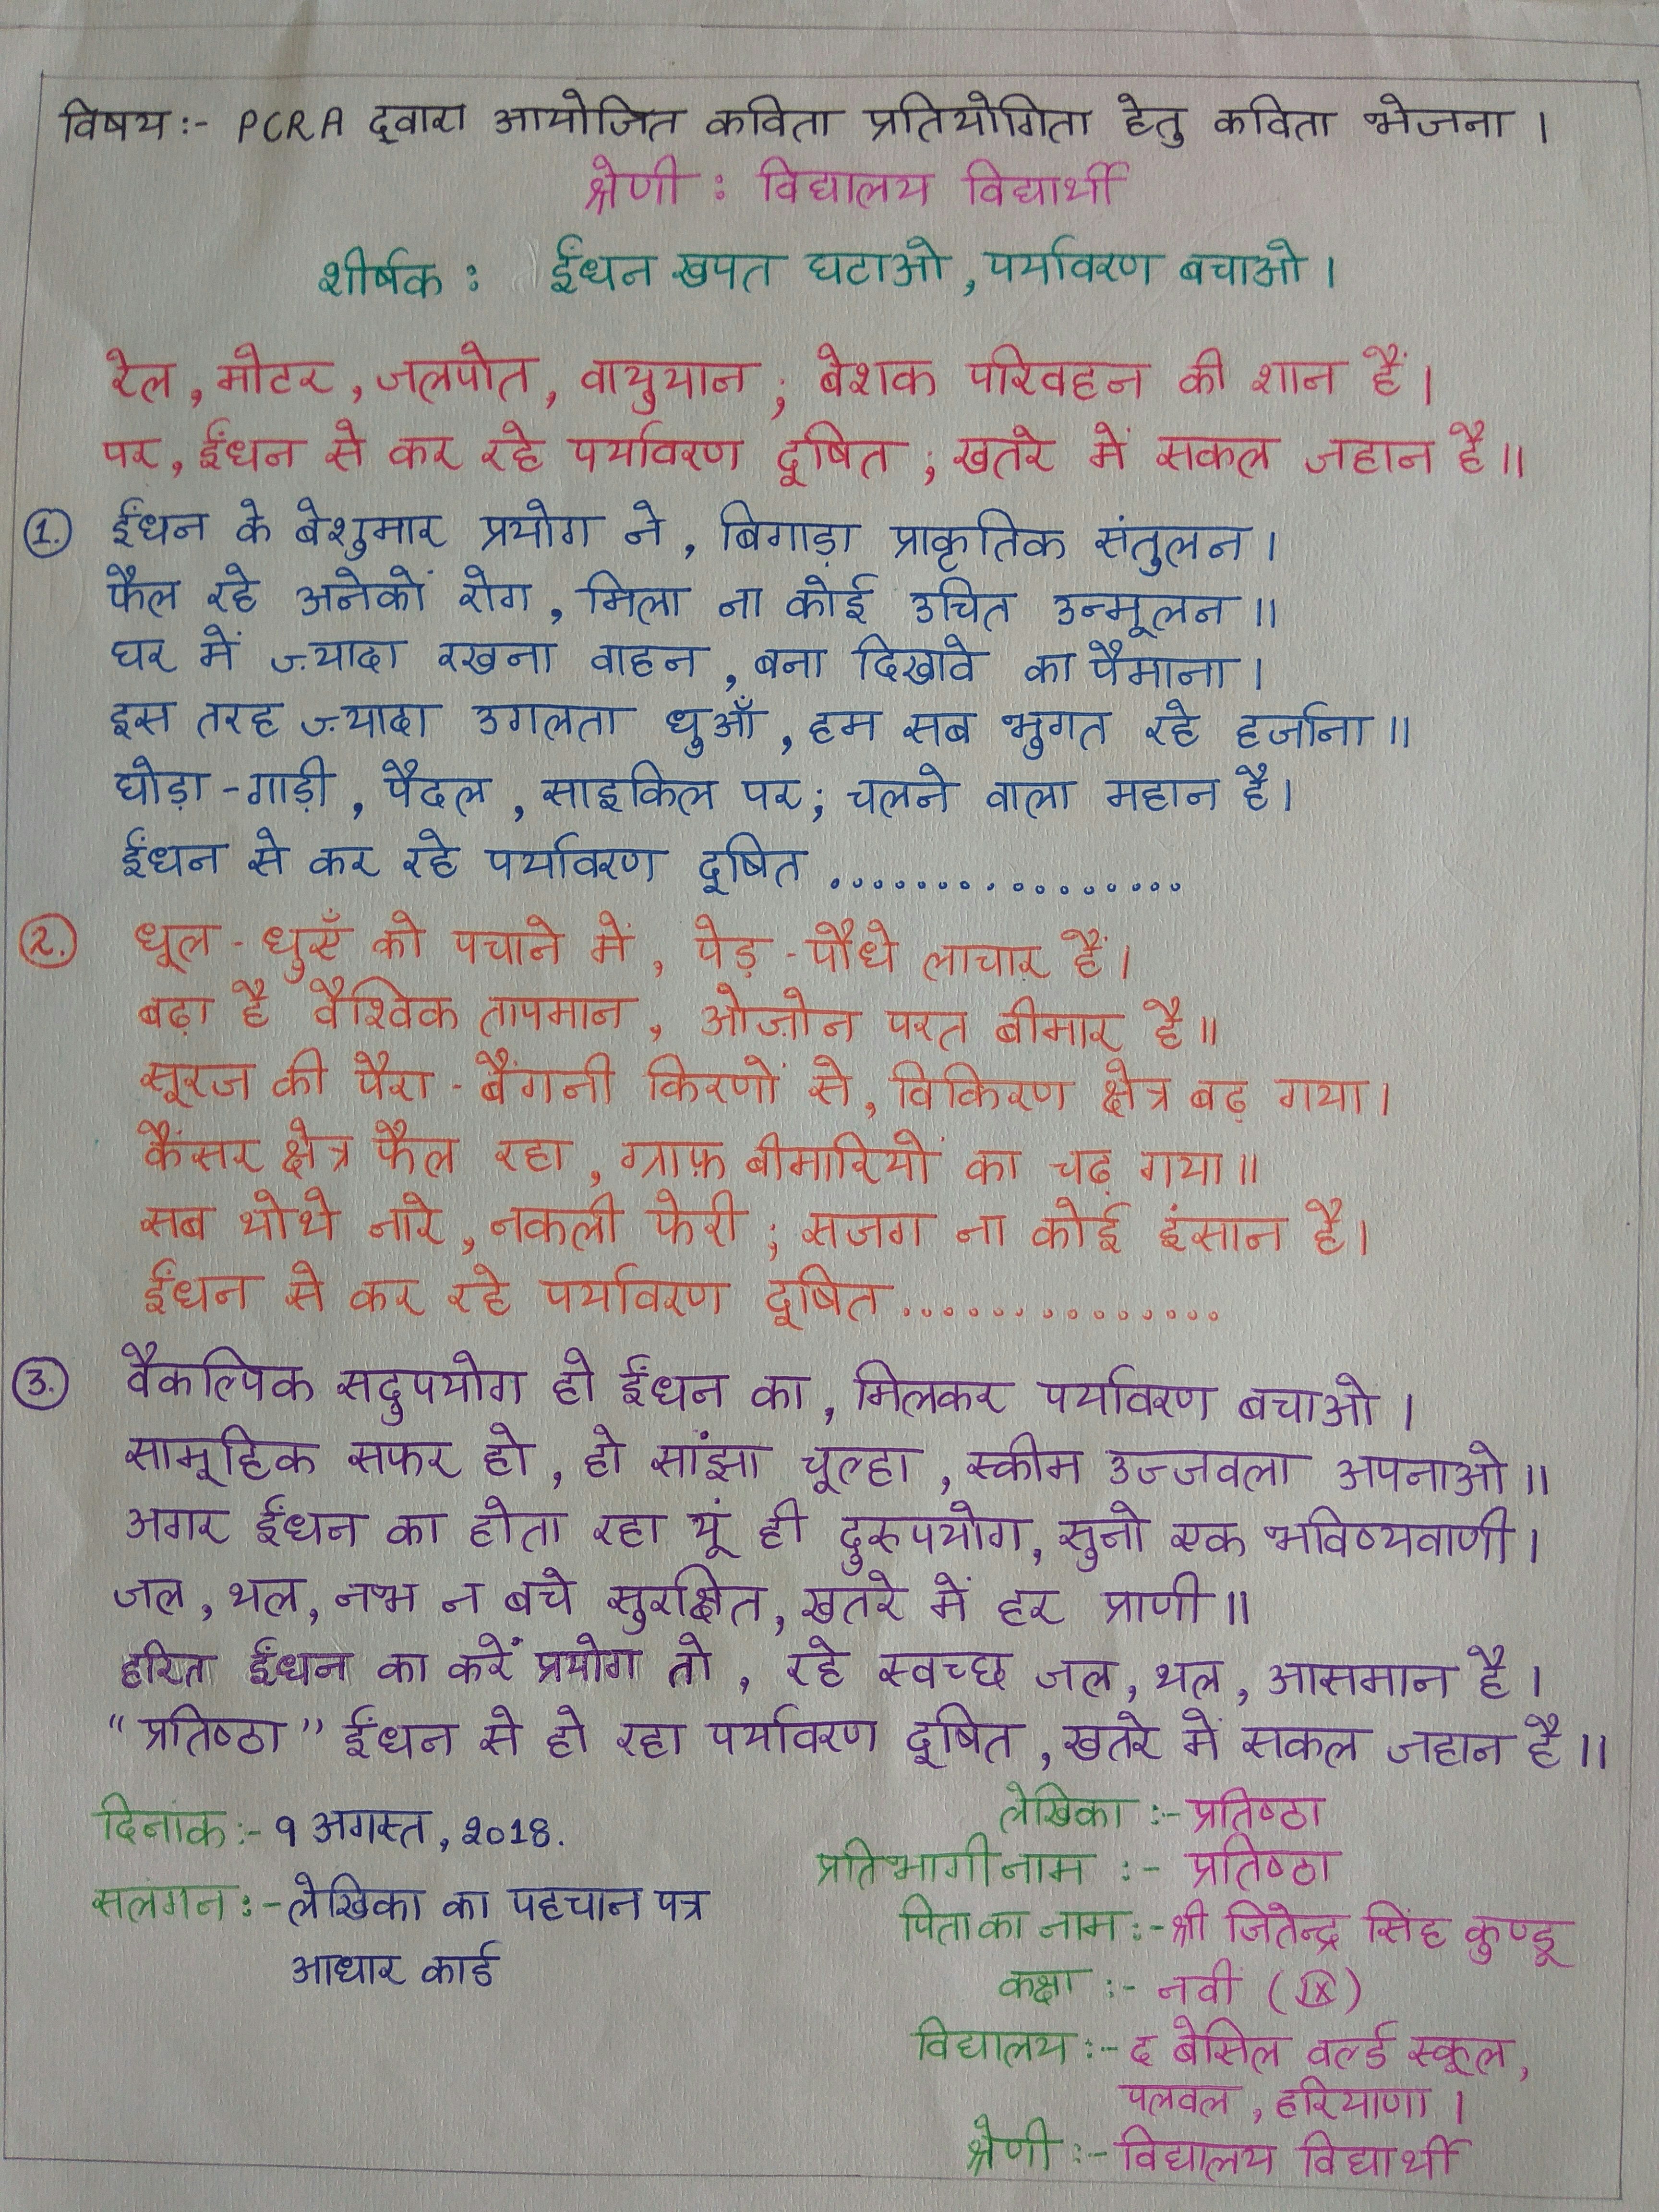 विषय :- PCRA द्वारा आयोजित कविता प्रतियोगिता हेतु कविता भेजना ।
श्रेणी : विद्यालय विद्यार्थी
शीर्षक : ईंधन खपत घटाओ, पर्यावरण बचाओ ।
रेल, मोटर, जलपोत, वायुयान ; बेशक परिवहन की शान हैं ।
पर, ईंधन से कर रहे पर्यावरण दूषित ; खतरे में सकल जहान है ॥
1. ईंधन के बेशुमार प्रयोग ने, बिगाड़ा प्राकृतिक संतुलन ।
फैल रहे अनेकों रोग, मिला ना कोई उचित उन्मूलन ॥
घर में ज़्यादा रखना वाहन, बना दिखावे का पैमाना ।
इस तरह ज़्यादा उगलता धुआँ, हम सब भुगत रहे हर्जाना ॥
घोड़ा-गाड़ी, पैदल, साइकिल पर; चलने वाला महान है ।
ईंधन से कर रहे पर्यावरण दूषित .................
2. धूल-धुएँ को पचाने में, पेड़-पौधे लाचार हैं ।
बढ़ा है वैश्विक तापमान, ओज़ोन परत बीमार है ॥
सूरज की पैरा-बैंगनी किरणों से, विकिरण क्षेत्र बढ़ गया ।
कैंसर क्षेत्र फैल रहा, ग्राफ़ बीमारियों का चढ़ गया ॥
सब थोथे नारे, नकली फेरी ; सजग ना कोई इंसान है ।
ईंधन से कर रहे पर्यावरण दूषित ...............
3. वैकल्पिक सदुपयोग हो ईंधन का, मिलकर पर्यावरण बचाओ ।
सामूहिक सफर हो, हो सांझा चूल्हा, स्कीम उज्जवला अपनाओ ॥
अगर ईंधन का होता रहा यूं ही दुरुपयोग, सुनो एक भविष्यवाणी ।
जल, थल, नभ न बचे सुरक्षित, खतरे में हर प्राणी ॥
हरित ईंधन का करें प्रयोग तो, रहे स्वच्छ जल, थल, आसमान है ।
"प्रतिष्ठा" ईंधन से हो रहा पर्यावरण दूषित, खतरे में सकल जहान है ॥
दिनांक :- 9 अगस्त, 2018.
सलंगन :- लेखिका का पहचान पत्र
आधार कार्ड
लेखिका :- प्रतिष्ठा
प्रतिभागी नाम :- प्रतिष्ठा
पिता का नाम :- श्री जितेन्द्र सिंह कुण्डू
कक्षा :- नवीं (IX)
विद्यालय :- द बेसिल वर्ल्ड स्कूल,
पलवल, हरियाणा ।
श्रेणी :- विद्यालय विद्यार्थी